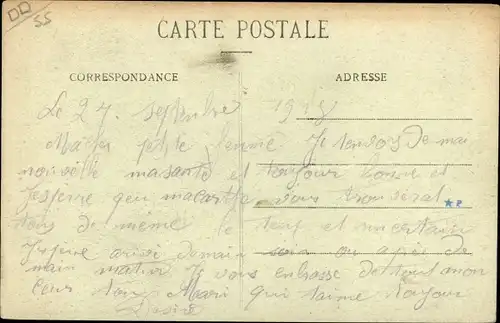 DD
55
CARTE POSTALE
CORRESPONDANCE
ADRESSE
Le 27 septembre 1918
Ma petite femme Je tenvois de mai
nouvelle masanté et toujour bonne et
Jespere que macarte vous trouvera
tous de même le temp et
Jispére arivé demain soir ou apré de
main matin Je vous enbrasse de tout mon
Mari qui taime toujour
Desiré